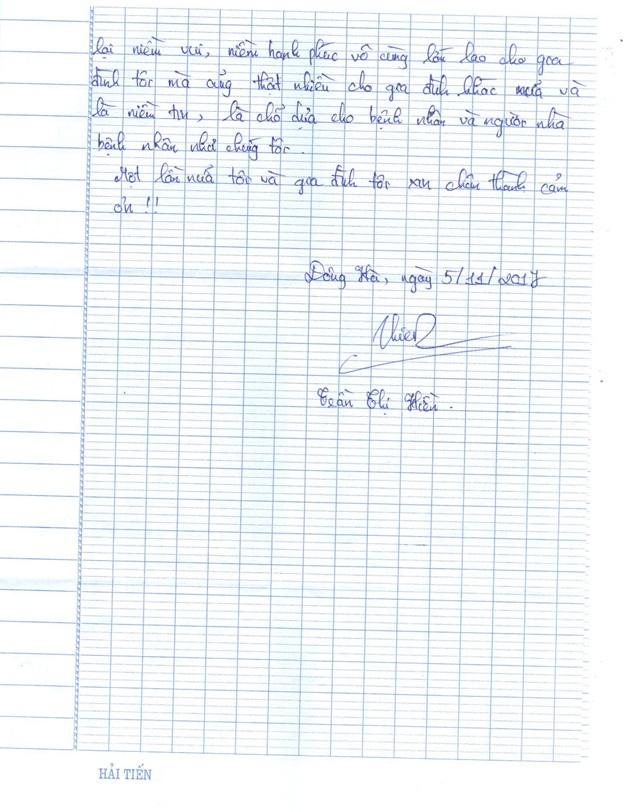 lại niềm vui, niềm hạnh phúc vô cùng lớn lao cho gia
đình tôi mà cũng thật nhiều cho gia đình khác nữa và
là niềm tin, là chổ dựa cho bệnh nhân và người nhà
bệnh nhân như chúng tôi.
Một lần nữa tôi và gia đình tôi xin chân thành cảm
ơn!!
Đông Hà, ngày 5/11/2017
Hiền
Trần Thị Hiền.
HẢI TIẾN